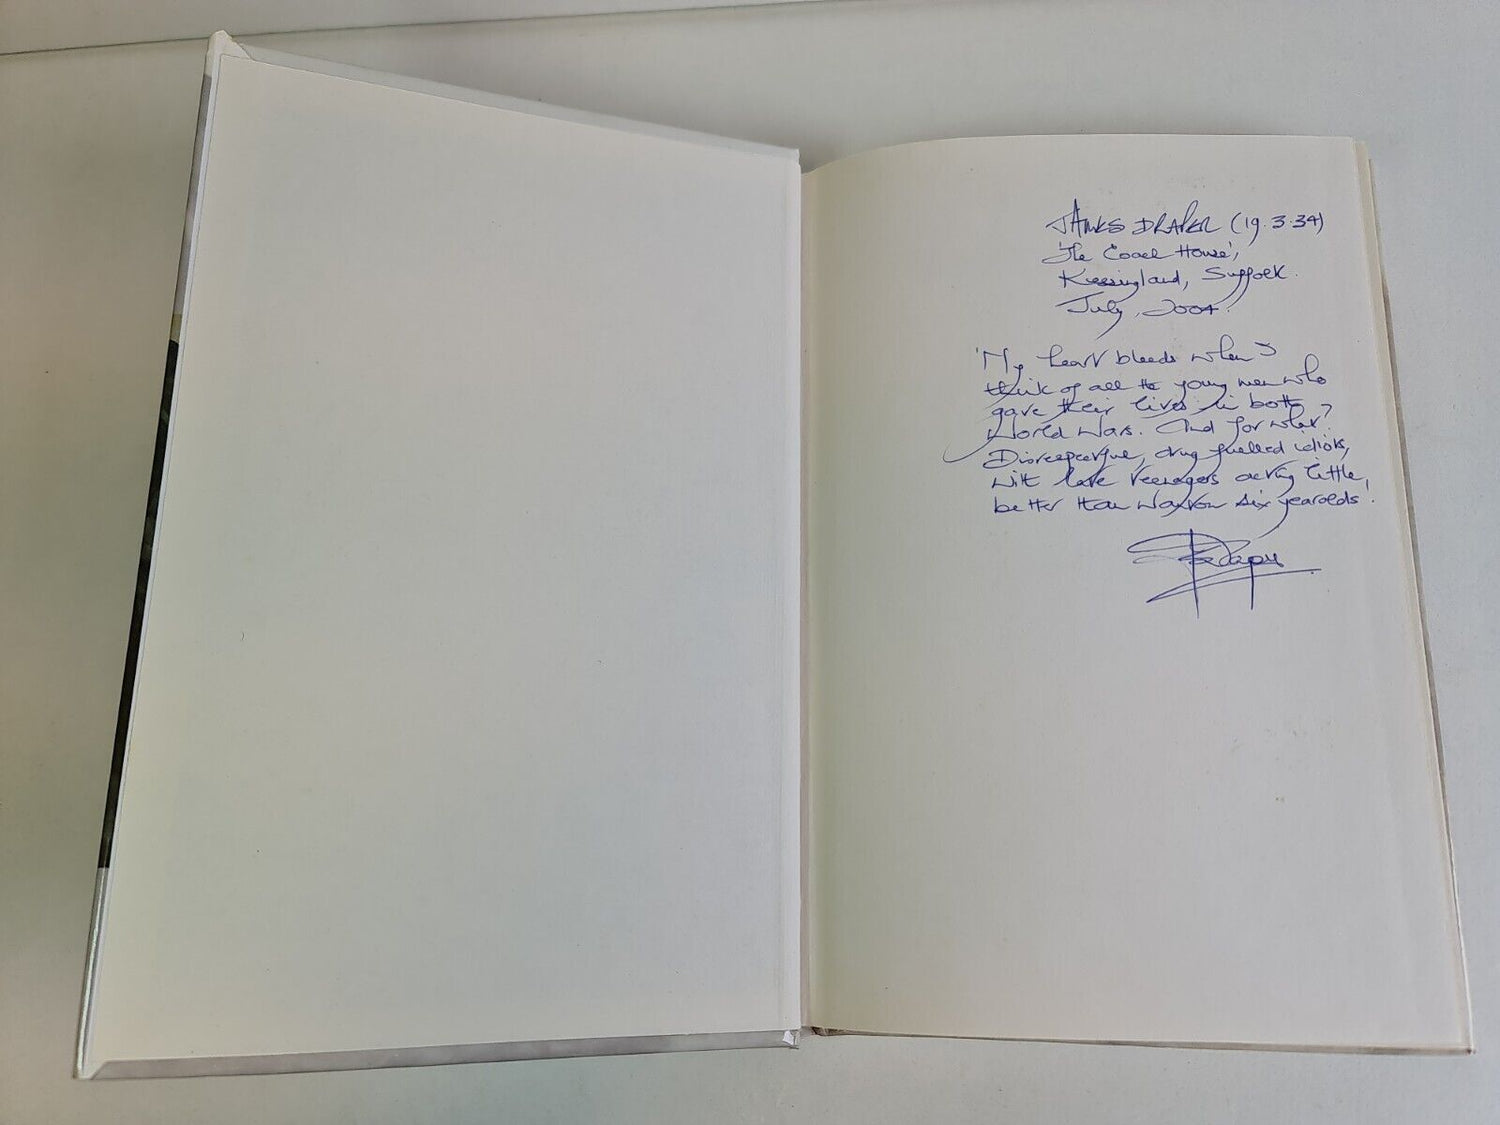 JAMES DRAPER (19.3.34)
'The Coach House',
Kessingland, Suffolk.
July, 2004.
'My heart bleeds when I
think of all the young men who
gave their lives in both
World Wars. And for what?
Disrespectful, drug fuelled idiots,
with late teenagers acting little,
better than wanton six yearolds'.
Draper